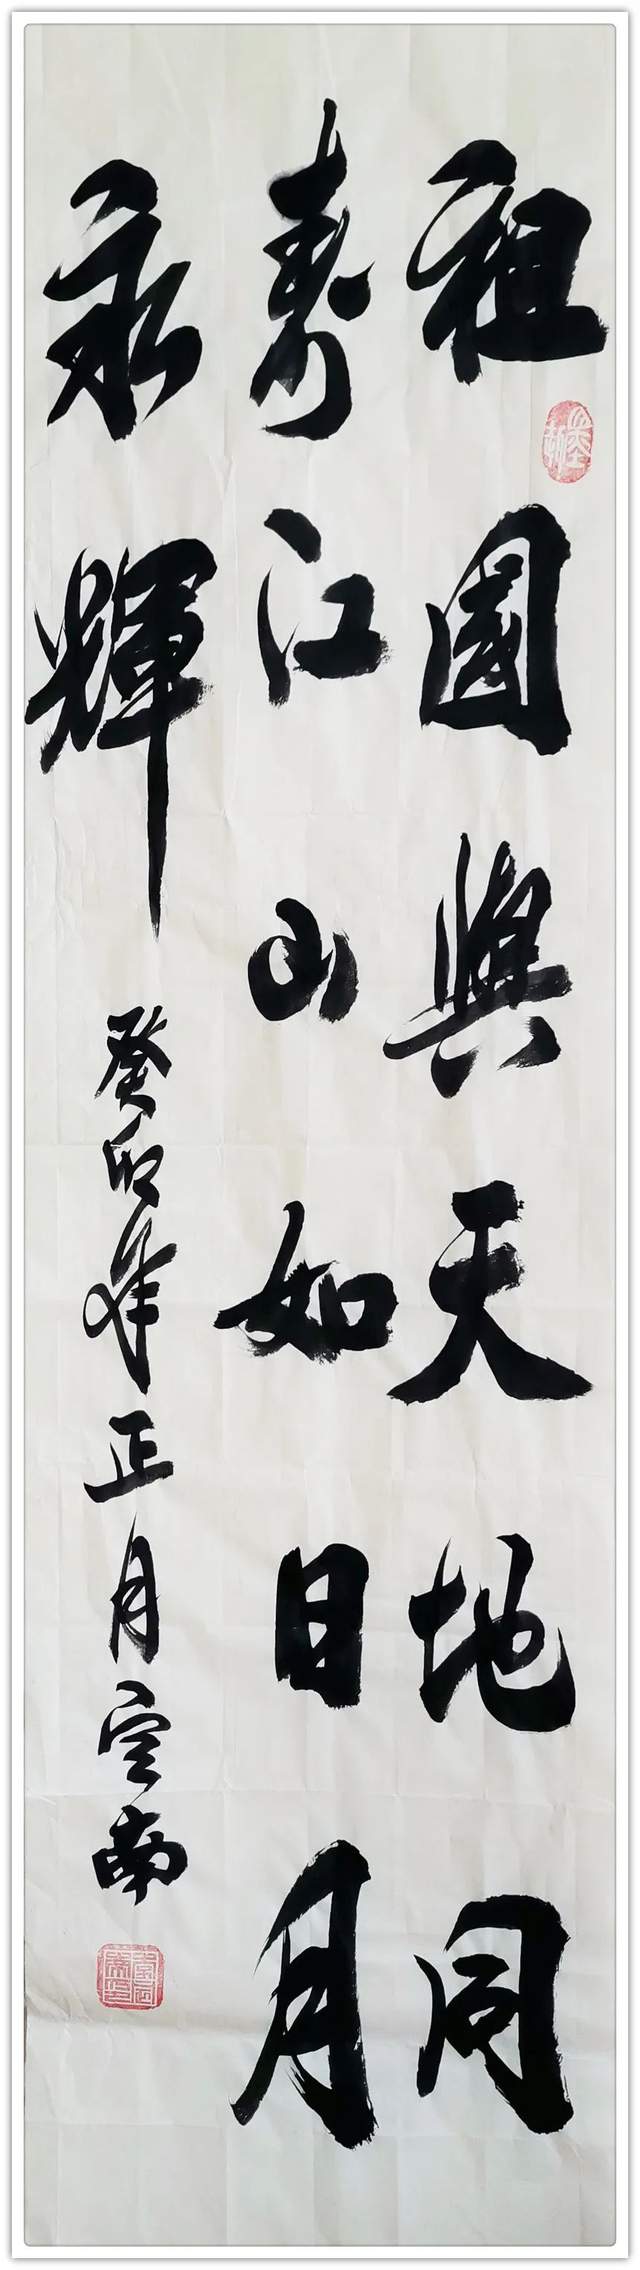 祖國與天地同
壽江山如日月
永輝
癸卯年正月
南